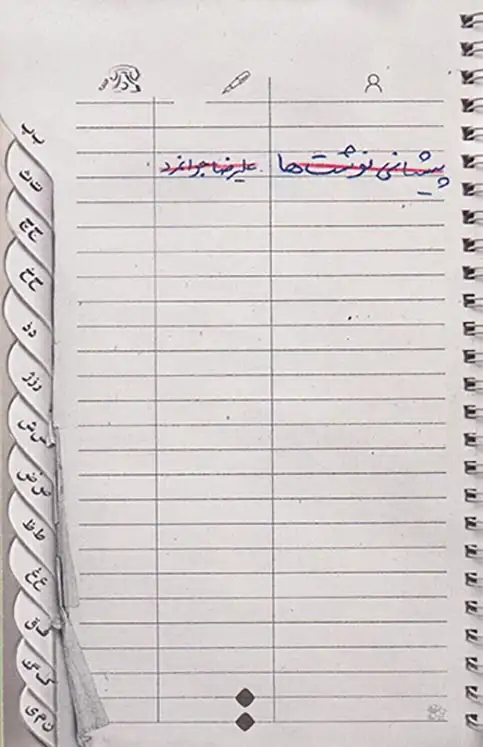 پیشانی نوشت‌ها علیرضا جوانمرد
ب پ
ت ث
ج چ
ح خ
د ذ
ر ز ژ
س ش
ص ض
ط ظ
ع غ
ف ق
ک گ
ن م ی